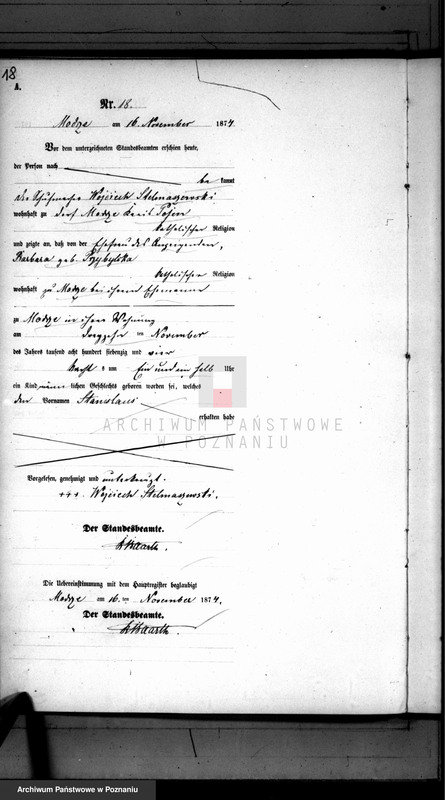 18
A.
Nr. 18.
Modze am 16. November 1874
Vor dem unterzeichneten Standesbeamten erschien heute,
der Person nach
be kannt
der Schuhmacher Wojciech Stelmaszewski
wohnhaft zu Dorf Modze Kreis Posen
katholischer Religion
und zeigte an, daß von der Ehefrau des Anzeigenden,
Barbara geb. Przybylska
katholischer Religion
wohnhaft zu Modze bei ihrem Ehemanne
zu Modze in ihrer Wohnung
am ten November
des Jahres tausend acht hundert siebenzig und vier
Nachts um Ein und ein halb Uhr
ein Kind männlichen Geschlechts geboren worden sei, welches
den Vornamen Stanislaus
erhalten habe
Vorgelesen, genehmigt und unterkreuzt.
+++ Wojciech Stelmaszewski.
Der Standesbeamte.
Die Uebereinstimmung mit dem Hauptregister beglaubigt
Modze am 16. ten November 1874.
Der Standesbeamte.
ARCHIWUM PAŃSTWOWE
W POZNANIU
Archiwum Państwowe w Poznaniu